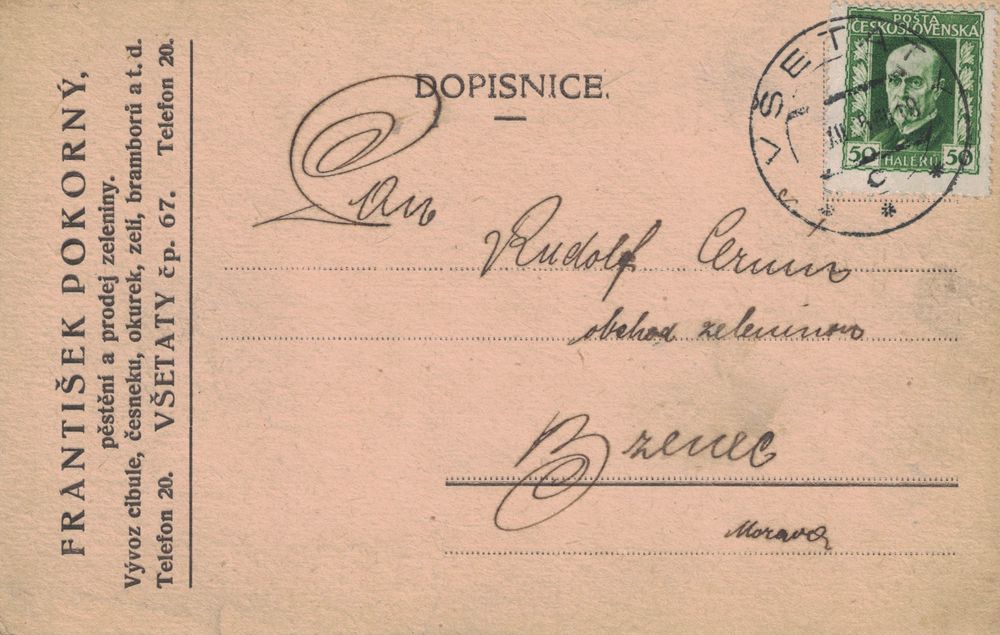 FRANTIŠEK POKORNÝ,
pěstění a prodej zeleniny.
Vývoz cibule, česneku, okurek, zelí, bramborů a t. d.
Telefon 20. VŠETATY čp. 67. Telefon 20.
DOPISNICE.
POŠTA
ČESKOSLOVENSKÁ
50 HALÉŘŮ 50
VŠETATY
Pan
Rudolf
obchod zeleninou
Bzenec
Morava